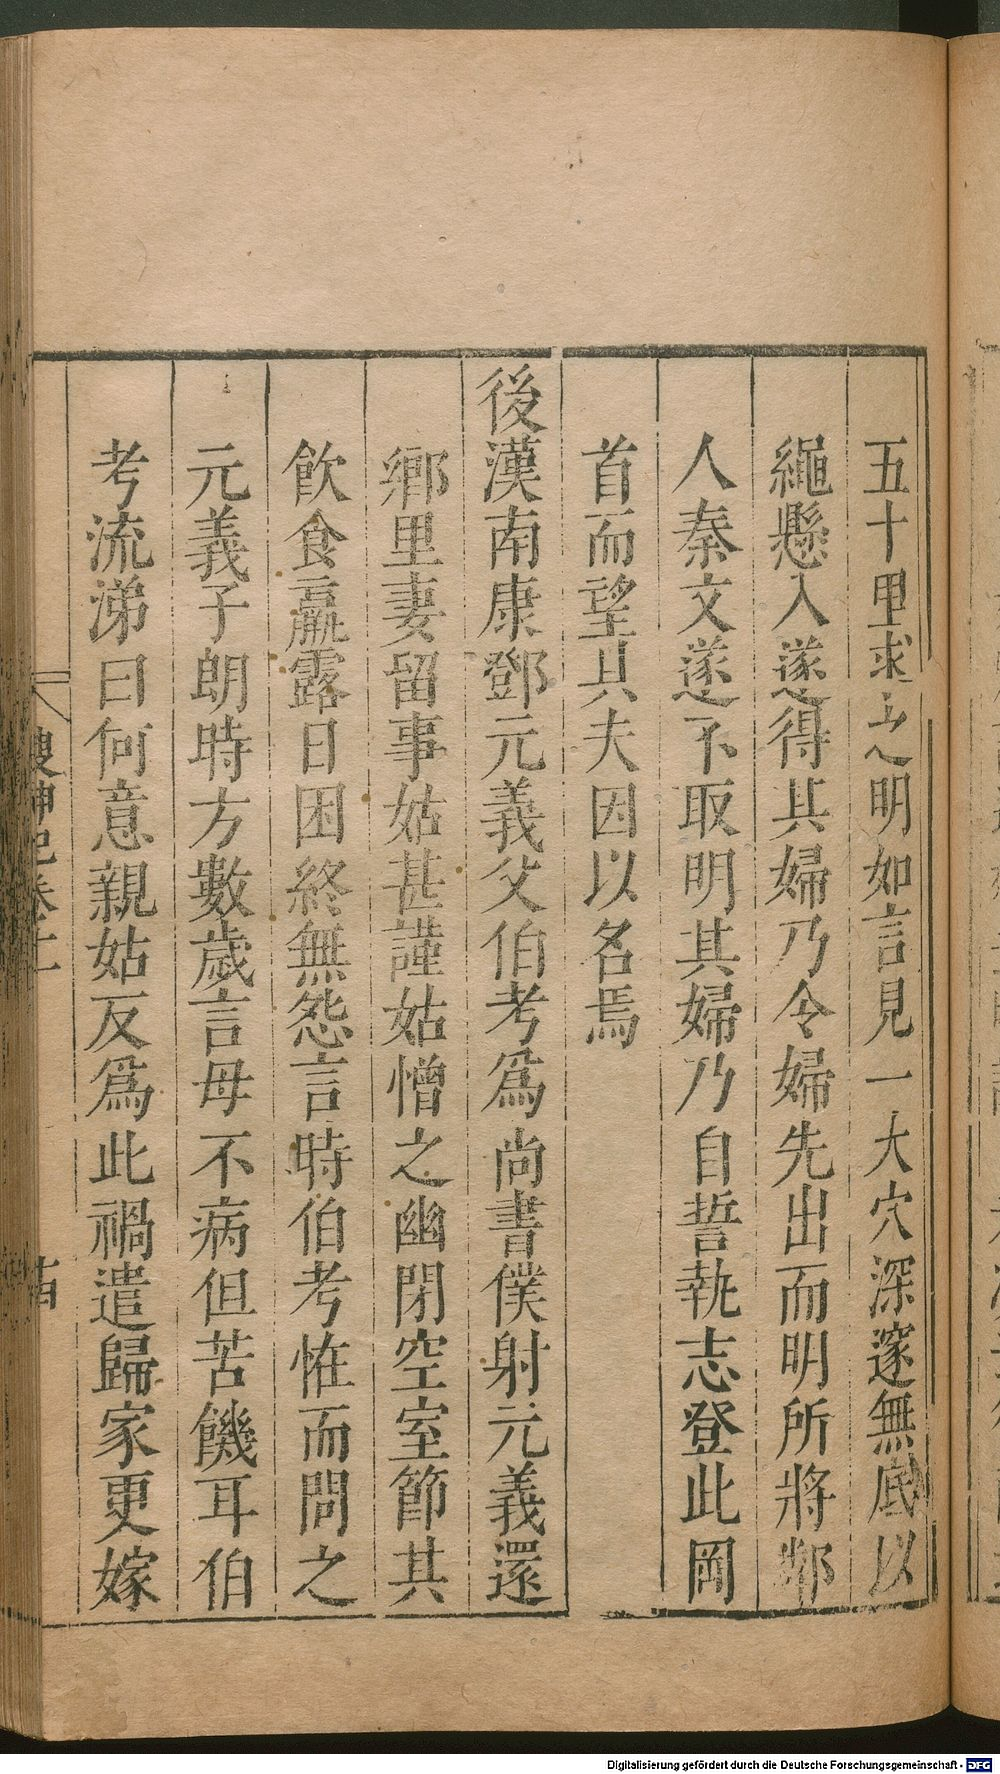 五十里求之明如言見一大穴深邃無底以
繩懸入遂得其婦乃令婦先出而明所將鄰
人秦文遂不取明其婦乃自誓執志登此岡
首而望其夫因以名焉
後漢南康鄧元義父伯考爲尚書僕射元義還
鄉里妻留事姑甚謹姑憎之幽閉空室節其
飲食羸露日困終無怨言時伯考怪而問之
元義子朗時方數歲言母不病但苦饑耳伯
考流涕曰何意親姑反爲此禍遣歸家更嫁
搜神記卷十
Digitalisierung gefördert durch die Deutsche Forschungsgemeinschaft - DFG